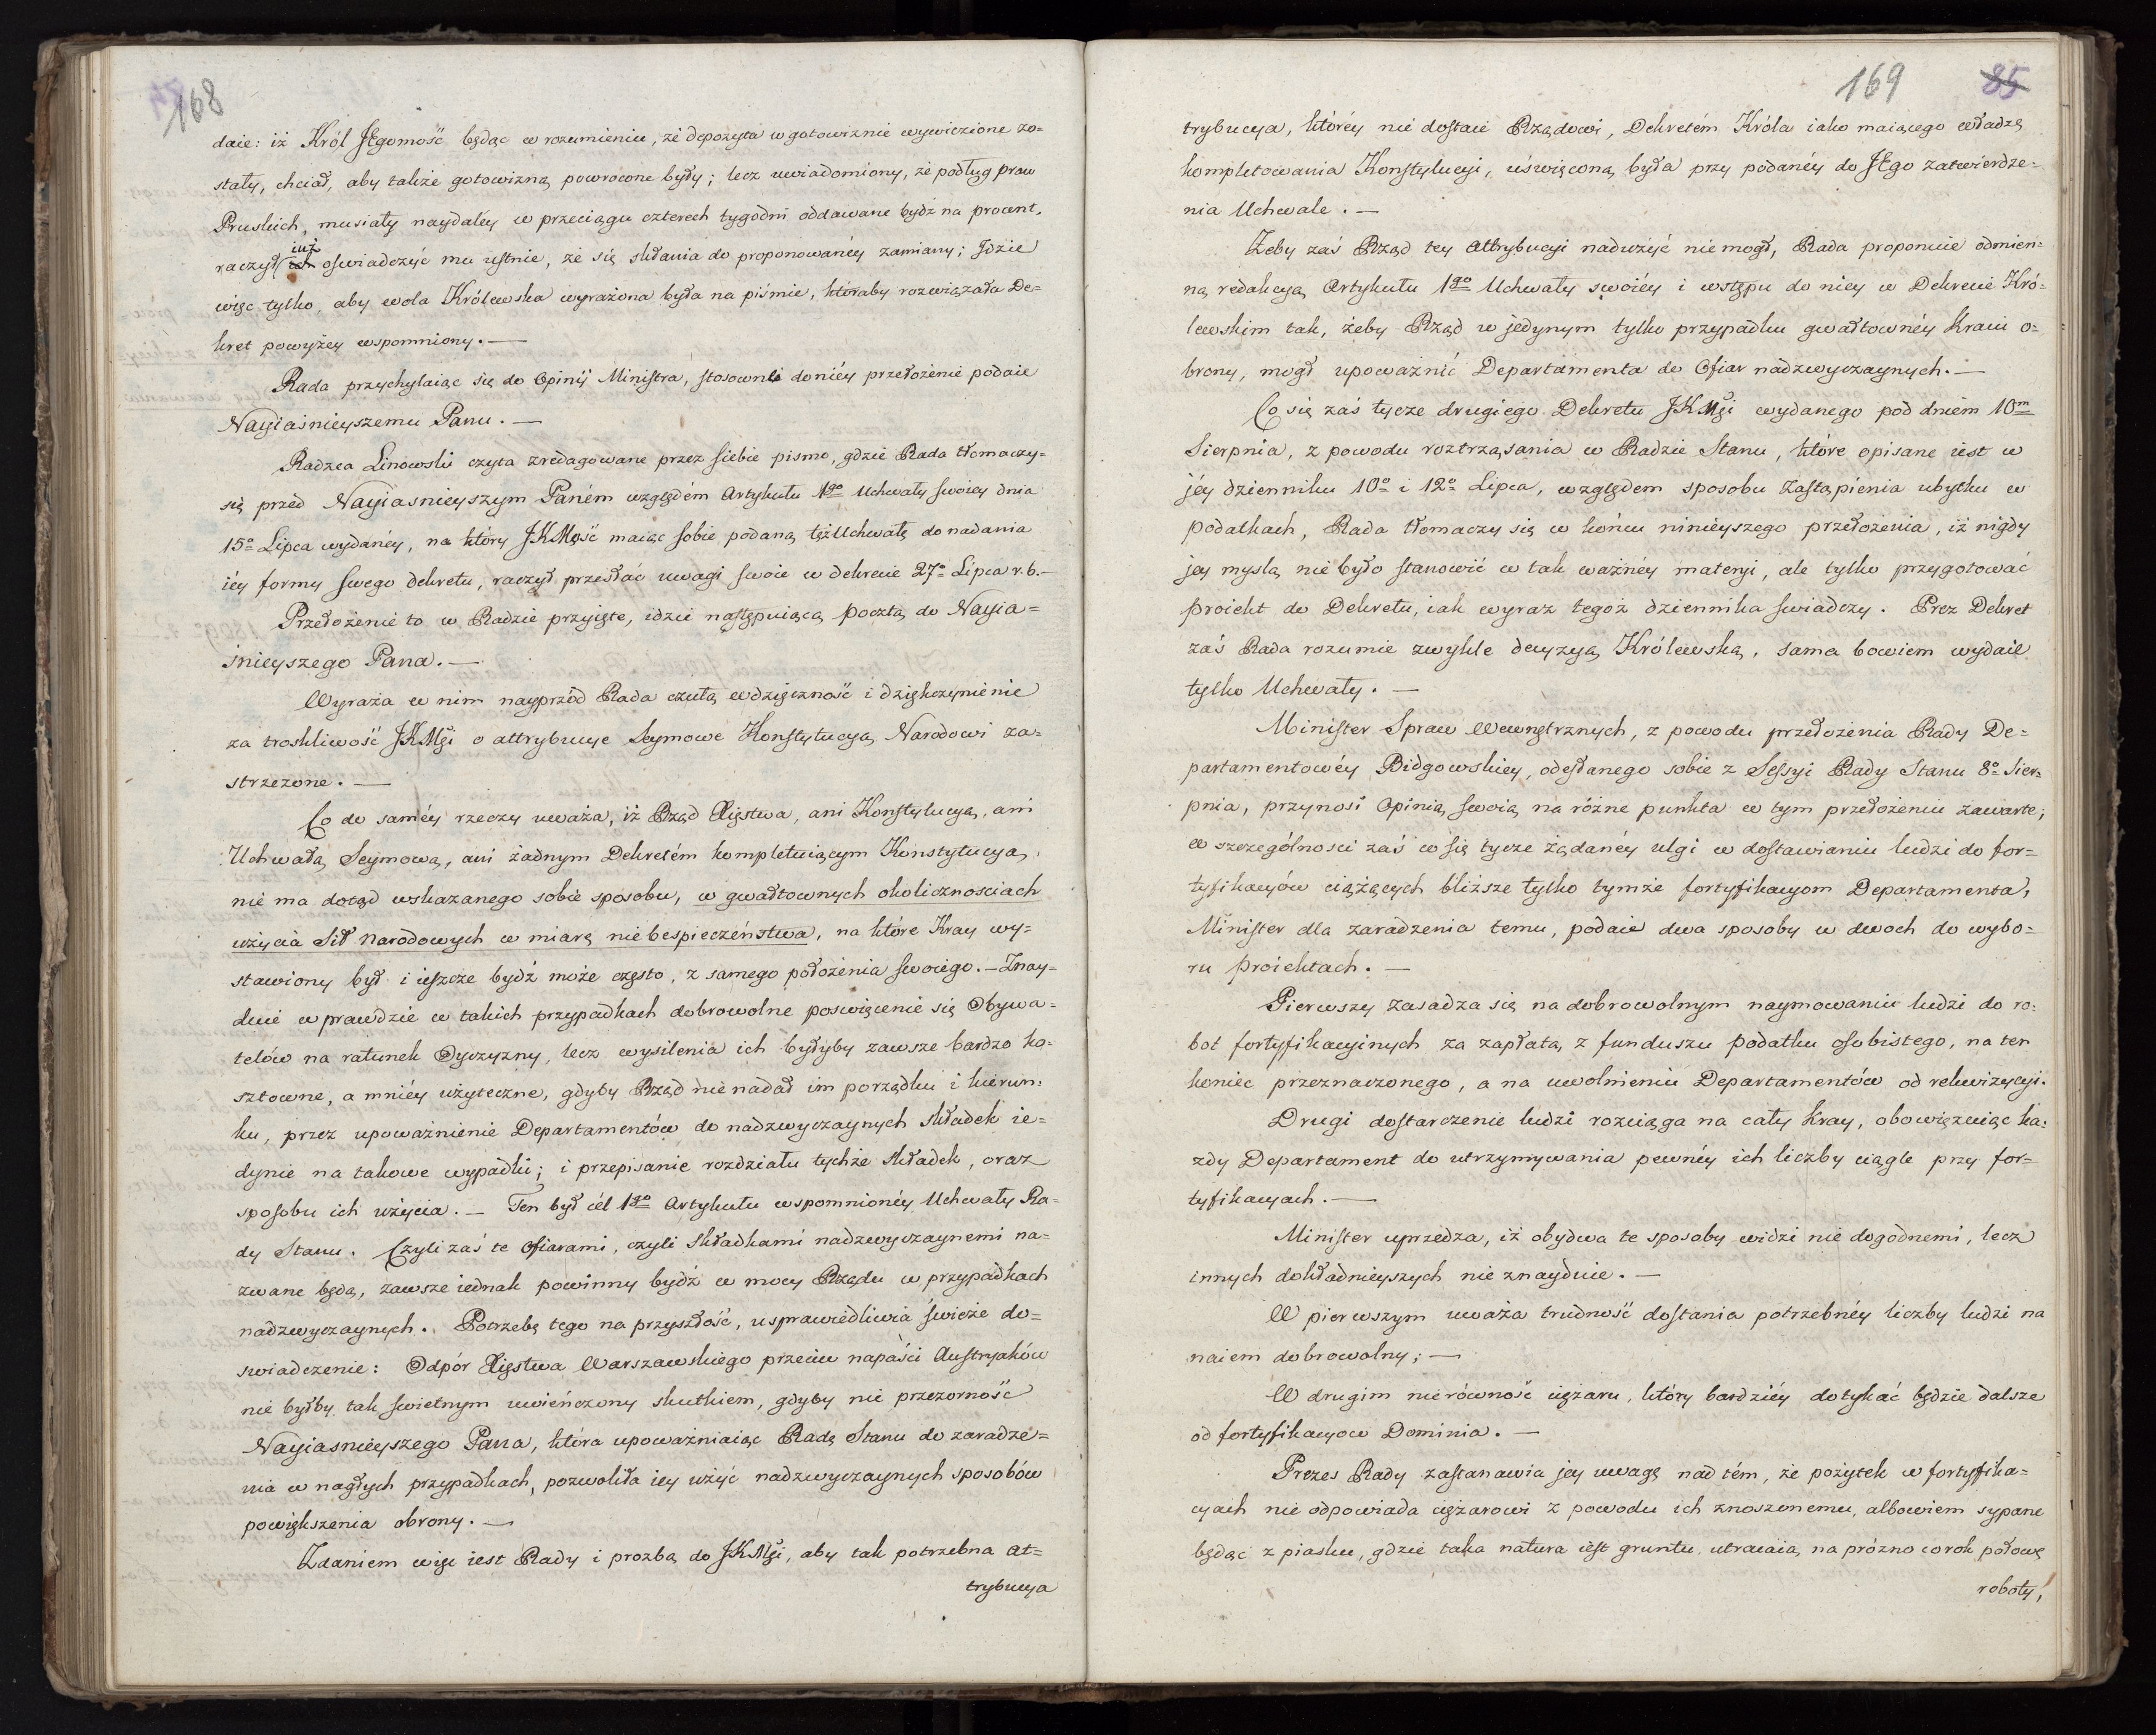 168
daie: iż Król JEgomość będąc w rozumieniu, że depozyta w gotowiznie wywiezione zo=
stały, chciał, aby także gotowizną powrocone były; lecz uwiadomiony, że podług praw
Pruskich, musiały naydaley w przeciągu czterech tygodni oddawane bydź na procent,
raczył iuż oswiadczyć mu ustnie, że się skłania do proponowanéy zamiany; Jdzie
więc tylko, aby wola Królewska wyrażona była na piśmie, któraby rozwiązała De=
kret powyżey wspomniony. —
Rada przychylaiąc się do Opinij Ministra, stosowne do niéy przełożenie podaie
Nayiaśnieyszemu Panu. —
Radzca Linowski czyta zredagowane przez siebie pismo, gdzie Rada tłomaczy=
się przed Nayiasnieyszym Paném względém Artykułu 1go Uchwały swoiey dnia
15o Lipca wydanéy, na który JKMość maiąc sobie podaną tęż Uchwałę do nadania
iéy formy swego dekretu, raczył przesłać uwagi swoie w dekrecie 27o Lipca r. b. —
Przełożenie to w Radzie przyięte, idzie następuiącą pocztą do Nayia=
śnieyszego Pana. —
Wyraża w nim nayprzód Rada czułą wdzięczność i dziękczynienie
za troskliwość JKMći o attrybucye Seymowe Konstytucyą Narodowi za=
strzeżone. —
Co do saméy rzeczy uważa, iż Rząd Xięstwa, ani Konstytucyą, ani
Uchwałą Seymową, ani żadnym Dekretém kompletuiącym Konstytucyą,
nie ma dotąd wskazanego sobie sposobu, w gwałtownych okolicznosciach
użycia Sił Narodowych w miarę niebespieczeństwa, na które Kray wy=
stawiony był i ieszcze bydź może często, z samego położenia swoiego. — Znay=
duie wprawdzie w takich przypadkach dobrowolne poswięcenie się Obywa=
telów na ratunek Oyczyzny, lecz wysilenia ich byłyby zawsze bardzo ko=
sztowne, a mniéy użyteczne, gdyby Rząd nie nadał im porządku i kierun=
ku, przez upoważnienie Departamentów do nadzwyczaynych składek ie=
dynie na takowe wypadki; i przepisanie rozdziału tychże składek, oraz
sposobu ich użycia. — Ten był cél 1go Artykułu wspomnionéy Uchwały Ra=
dy Stanu. Czyli zaś te Ofiarami, czyli składkami nadzwyczaynemi na=
zwane będą, zawsze iednak powinny bydź w mocy Rządu w przypadkach
nadzwyczaynych. Potrzebę tego na przyszłość, usprawiedliwia świeże do=
swiadczenie: Odpór Xięstwa Warszawskiego przeciw napaści Austryaków
nie byłby tak swietnym uwieńczony skutkiem, gdyby nie przezorność
Nayiasnieyszego Pana, która upoważniaiąc Radę Stanu do zaradze=
nia w nagłych przypadkach, pozwoliła iey użyć nadzwyczaynych sposobów
powiększenia obrony. —
Zdaniem więc iest Rady i prozbą do JKMći, aby tak potrzebna at=
trybucya
169 85
trybucya, któréy nie dostaie Rządowi, Dekretém Króla iako maiącego władzę
kompletowania Konstytucyi, uświęconą była przy podanéy do JEgo zatwierdze=
nia Uchwale. —
Żeby zaś Rząd tey Attrybucyi nadużyć nie mogł, Rada proponuie odmien=
ną redakcyą Artykułu 1go Uchwały swoiéy i wstępu do niey w Dekrecie Kró=
lewskim tak, żeby Rząd w jedynym tylko przypadku gwałtownéy Kraiu o=
brony, mógł upoważnić Departamenta do Ofiar nadzwyczaynych. —
Co się zaś tycze drugiego Dekretu JKMći wydanego pod dniem 10m
Sierpnia, z powodu roztrząsania w Radzie Stanu, które opisane iest w
jéy dzienniku 10o i 12o Lipca, względem sposobu Zastąpienia ubytku w
podatkach, Rada tłomaczy się w końcu ninieyszego przełożenia, iż nigdy
jey myslą nie było stanowić w tak ważnéy materyi, ale tylko przygotować
proiekt do Dekretu, iak wyraz tegoż dziennika swiadczy. Prez Dekret
zaś Rada rozumie zwykle decyzyą Królewską, sama bowiem wydaie
tylko Uchwały. —
Minister Spraw Wewnętrznych, z powodu przełożenia Rady De=
partamentowéy Bidgowskiey, odesłanego sobie z Sessyi Rady Stanu 8o Sier=
pnia, przynosi Opinią swoią na różne punkta w tym przełożeniu zawarte;
w szczególnosci zaś co się tycze żądanéy ulgi w dostawianiu ludzi do for=
tyfikacyów ciążących bliższe tylko tymże fortyfikacyom Departamenta,
Minister dla zaradzenia temu, podaie dwa sposoby w dwoch do wybo=
ru proiektach. —
Pierwszy zasadza się na dobrowolnym naymowaniu ludzi do ro=
bot fortyfikacyinych za zapłatą z funduszu podatku osobistego, na ten
koniec przeznaczonego, a na uwolnieniu Departamentów od rekwizycyi.
Drugi dostarczenie ludzi rozciąga na cały Kray, obowięzuiąc ka=
zdy Departament do utrzymywania pewnéy ich liczby ciągle przy for=
tyfikacyach. —
Minister uprzedza, iż obydwa te sposoby widzi nie dogodnemi, lecz
innych dokładnieyszych nie znayduie. —
W pierwszym uważa trudność dostania potrzebnéy liczby ludzi na
naiem dobrowolny; —
W drugim nierówność ciężaru, który bardziéy dotykać będzie dalsze
od fortyfikacyow Dominia. —
Prezes Rady zastanawia jey uwagę nad tém, że pożytek w fortyfika=
cyach nie odpowiada ciężarowi z powodu ich znoszonemu, albowiem sypane
będąc z piasku, gdzie taka natura iest gruntu, utracaią na próżno co rok połowę
roboty,